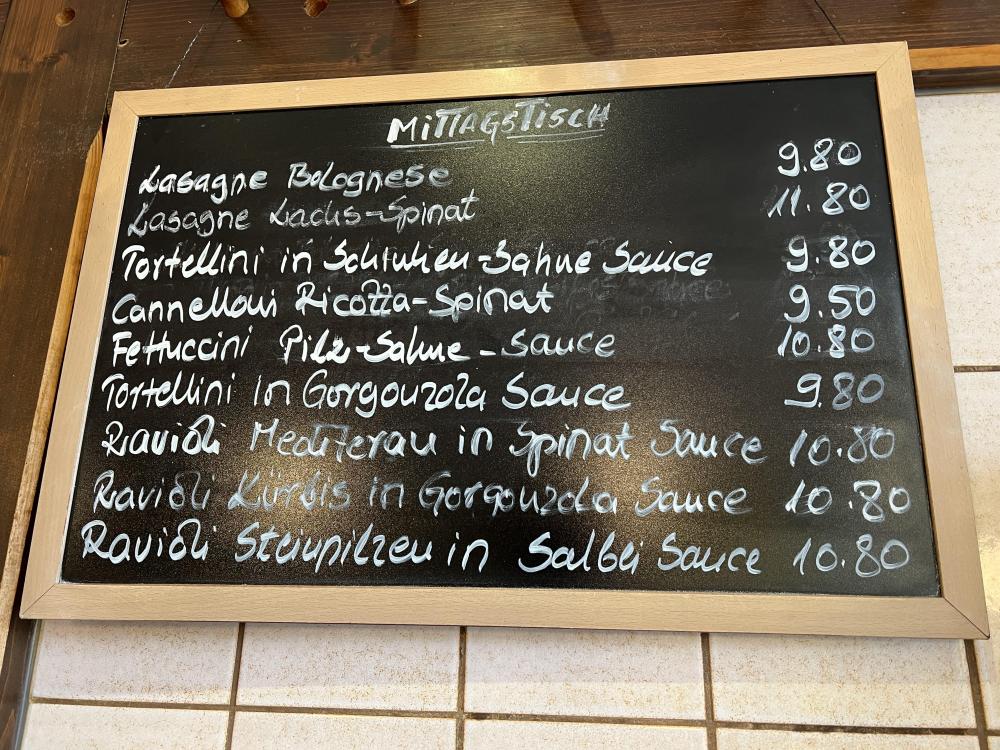 MITTAGSTISCH
Lasagne Bolognese 9.80
Lasagne Lachs-Spinat 11.80
Tortellini in Schinken-Sahne Sauce 9.80
Cannelloni Ricotta-Spinat 9.50
Fettuccini Pilz-Sahne-Sauce 10.80
Tortellini in Gorgonzola Sauce 9.80
Ravioli Mediteran in Spinat Sauce 10.80
Ravioli Kürbis in Gorgonzola Sauce 10.80
Ravioli Steinpilzen in Salbei Sauce 10.80